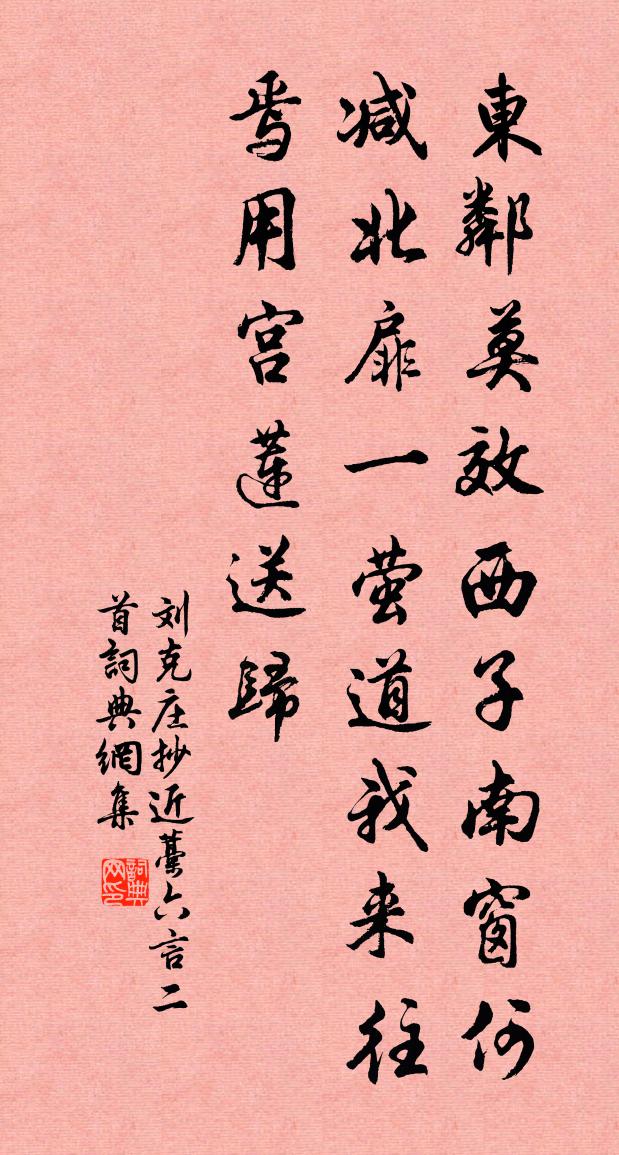 東鄰莫效西子南窗何
减北扉一萤道我来往
焉用宫莲送歸
刘克庄抄近藁六言二
首詞典網集
詞典網印